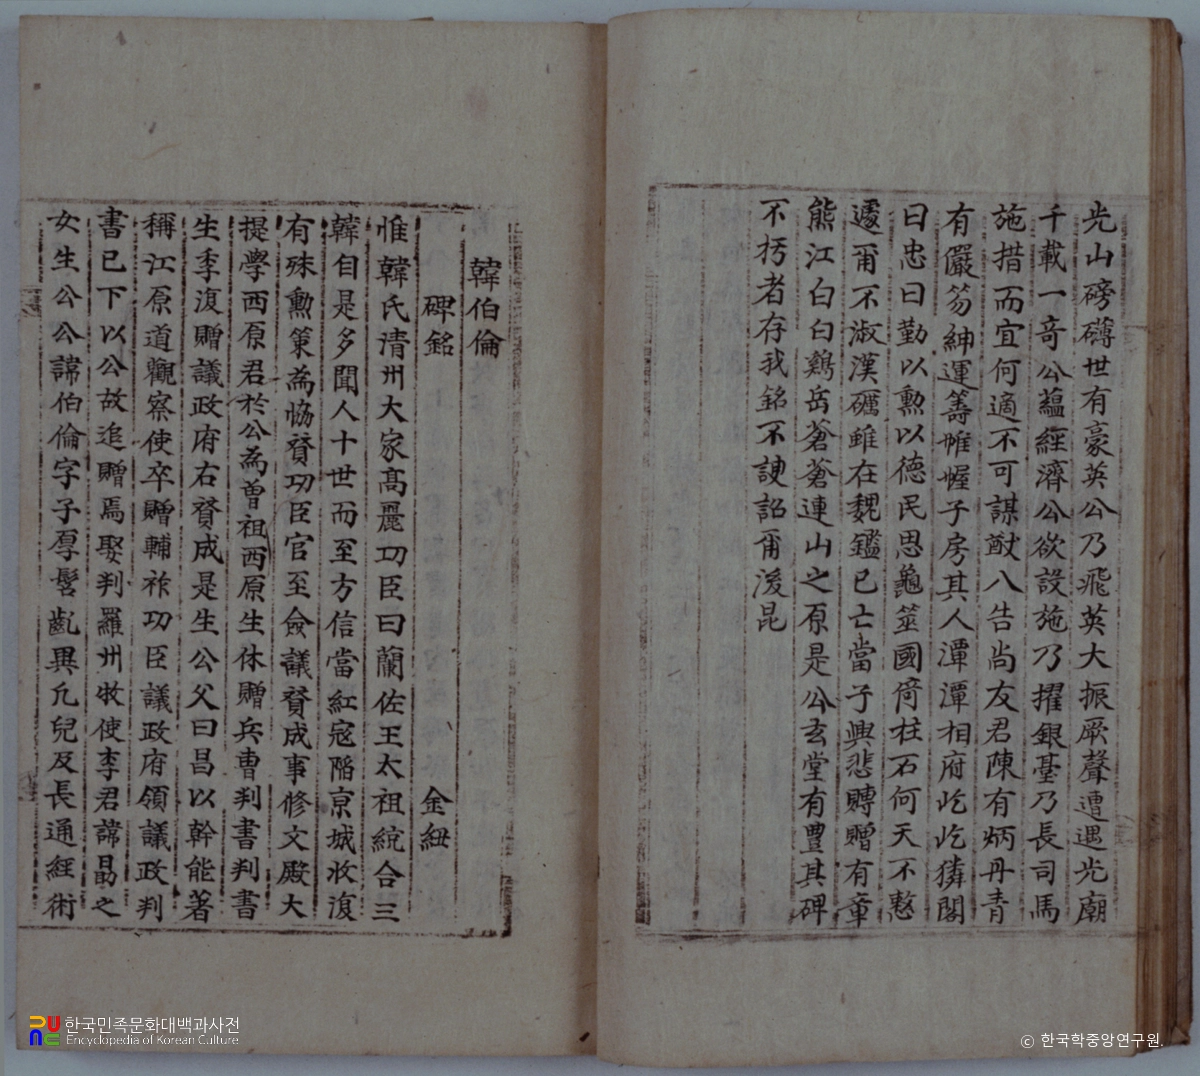 光山磅礴世有豪英公乃飛英大振厥聲遭遇光廟
千載一奇公蘊經濟公欲設施乃擢銀臺乃長司馬
施措而宜何適不可謀猷入告尚友君陳有炳丹青
有儼笏紳運籌帷幄子房其人潭潭相府屹屹獜閣
曰忠曰勤以勲以德民思龜筮國倚柱石何天不憗
遽甭不淑漢礪雖在魏鑑已亡當子興悲賻贈有章
熊江白白鷄岳蒼蒼連山之原是公玄堂有豊其碑
不朽者存我銘不諛詔甭後昆
韓伯倫
碑銘 金紐
惟韓氏淸州大家髙麗功臣曰蘭佐王太祖統合三
韓自是多聞人十世而至方信當紅寇陷京城收復
有殊勲策為恊賛功臣官至僉議賛成事修文殿大
提學西原君於公為曽祖西原生休贈兵曹判書判書
生季復贈議政府右賛成是生公父曰昌以幹能著
稱江原道觀察使卒贈輔祚功臣議政府領議政判
書已下以公故追贈焉娶判羅州牧使李君諱勗之
女生公公諱伯倫字子厚髫齓異凢兒及長通經術
한국민족문화대백과사전
Encyclopedia of Korean Culture
© 한국학중앙연구원.